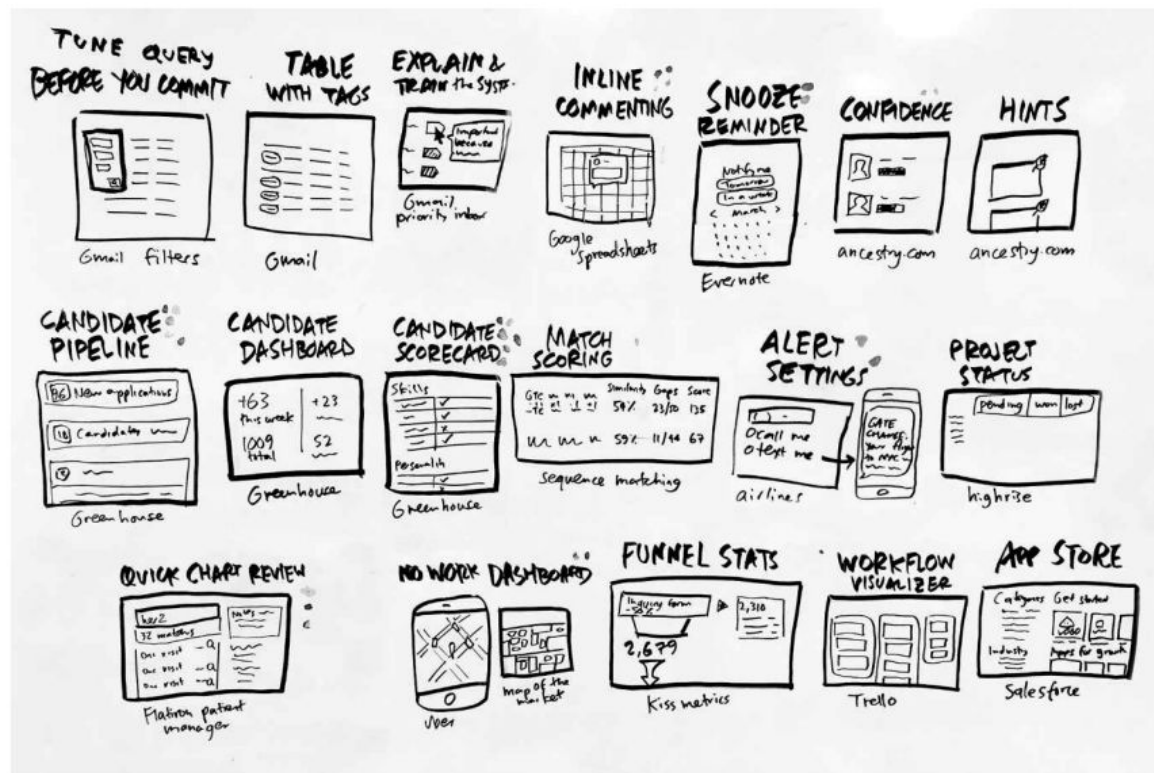 TUNE QUERY
BEFORE YOU COMMIT
Gmail filters
TABLE
WITH TAGS
Gmail
EXPLAIN &
TRAIN the SYST.
Important
because
Gmail
priority inbox
INLINE
COMMENTING
Google
Spreadsheets
SNOOZE
REMINDER
Notify me
Tomorrow
In a week
< March >
Evernote
CONFIDENCE
ancestry.com
HINTS
ancestry.com
CANDIDATE
PIPELINE
86 New applications
18 Candidates
Greenhouse
CANDIDATE
DASHBOARD
+63
this week
+23
1009
total
52
Greenhouse
CANDIDATE
SCORECARD
Skills
Personality
Greenhouse
MATCH
SCORING
Similarity Gaps Score
GTC
59% 23/50 135
59% 11/44 67
sequence matching
ALERT
SETTINGS
O call me
O text me
GATE
CHANGE.
Your flight
to NYC
airlines
PROJECT
STATUS
pending won lost
highrise
QUICK CHART REVIEW
her2
32 matches
One visit
One visit
One visit
Flatiron patient
manager
NO WORK DASHBOARD
Uber
map of the
market
FUNNEL STATS
Inquiry form
50%
2,679
2,310
Kiss metrics
WORKFLOW
VISUALIZER
Trello
APP STORE
Categories Get started
Industry Apps for growth
Salesforce